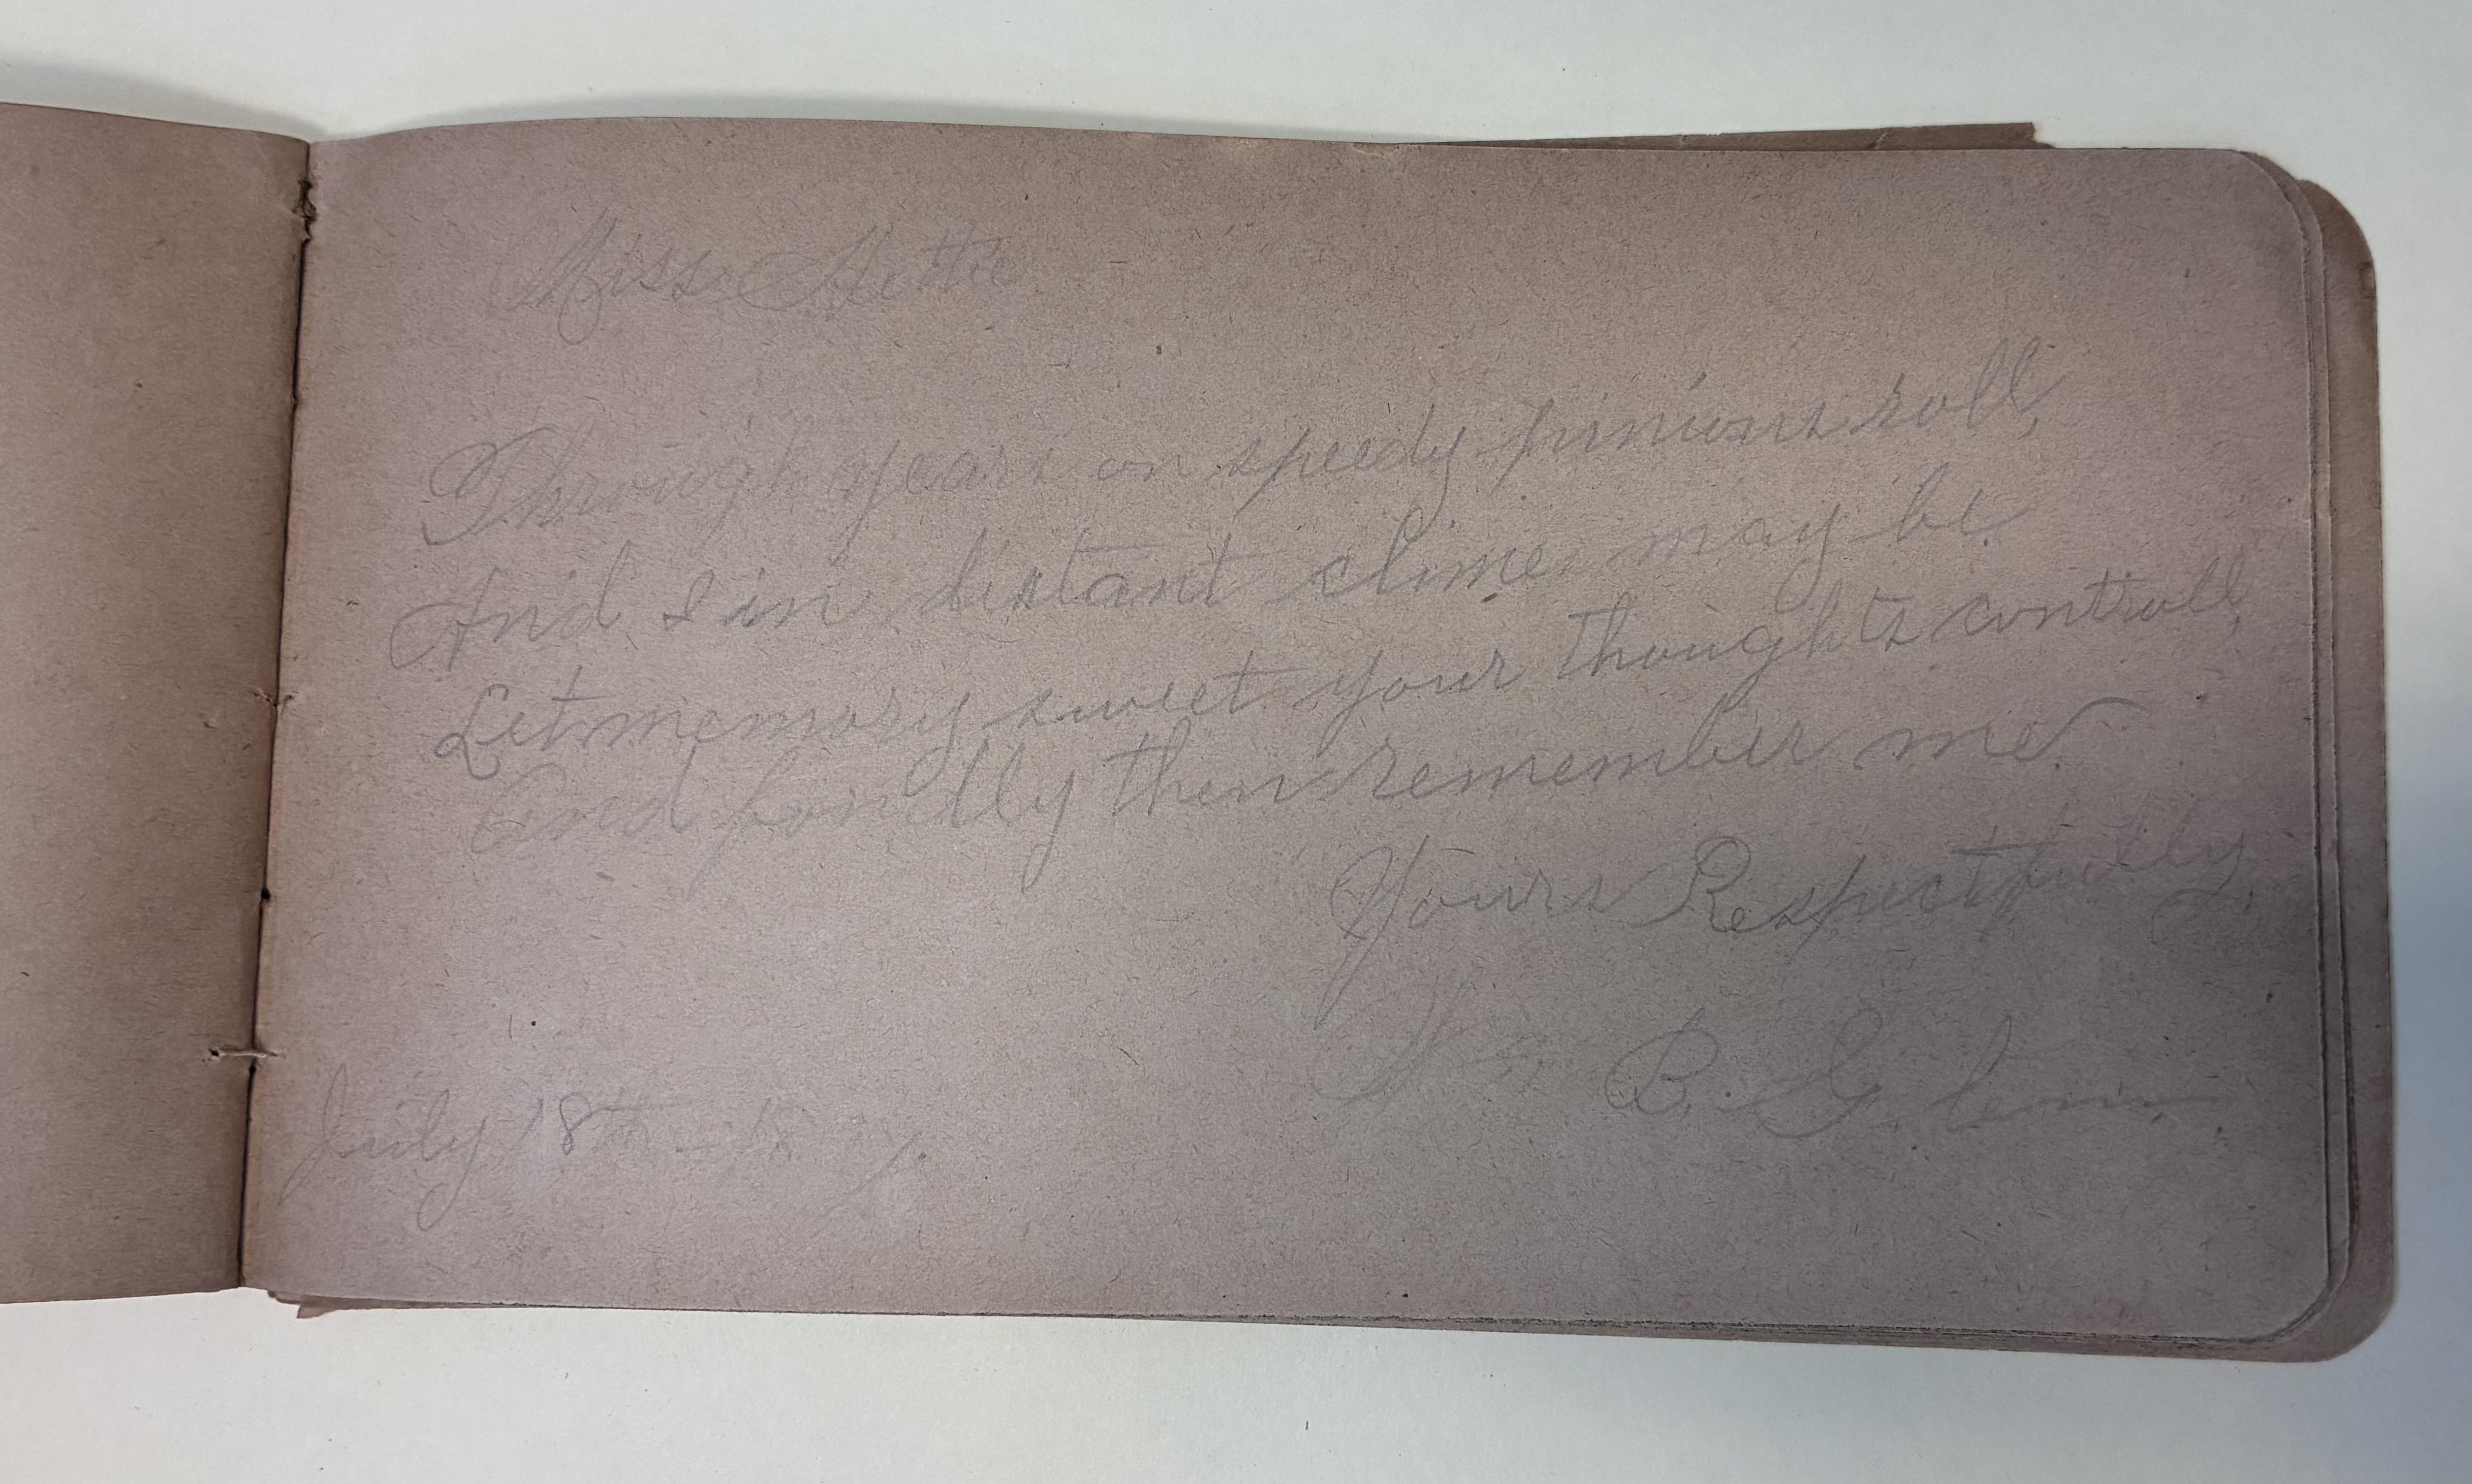 Miss Hettie
Through years on speedy pinions roll,
And I in distant climes may be.
Let memory sweet your thoughts controll,
And fondly then remember me.
Yours Respectfully,
B. G.
July 18th - 18